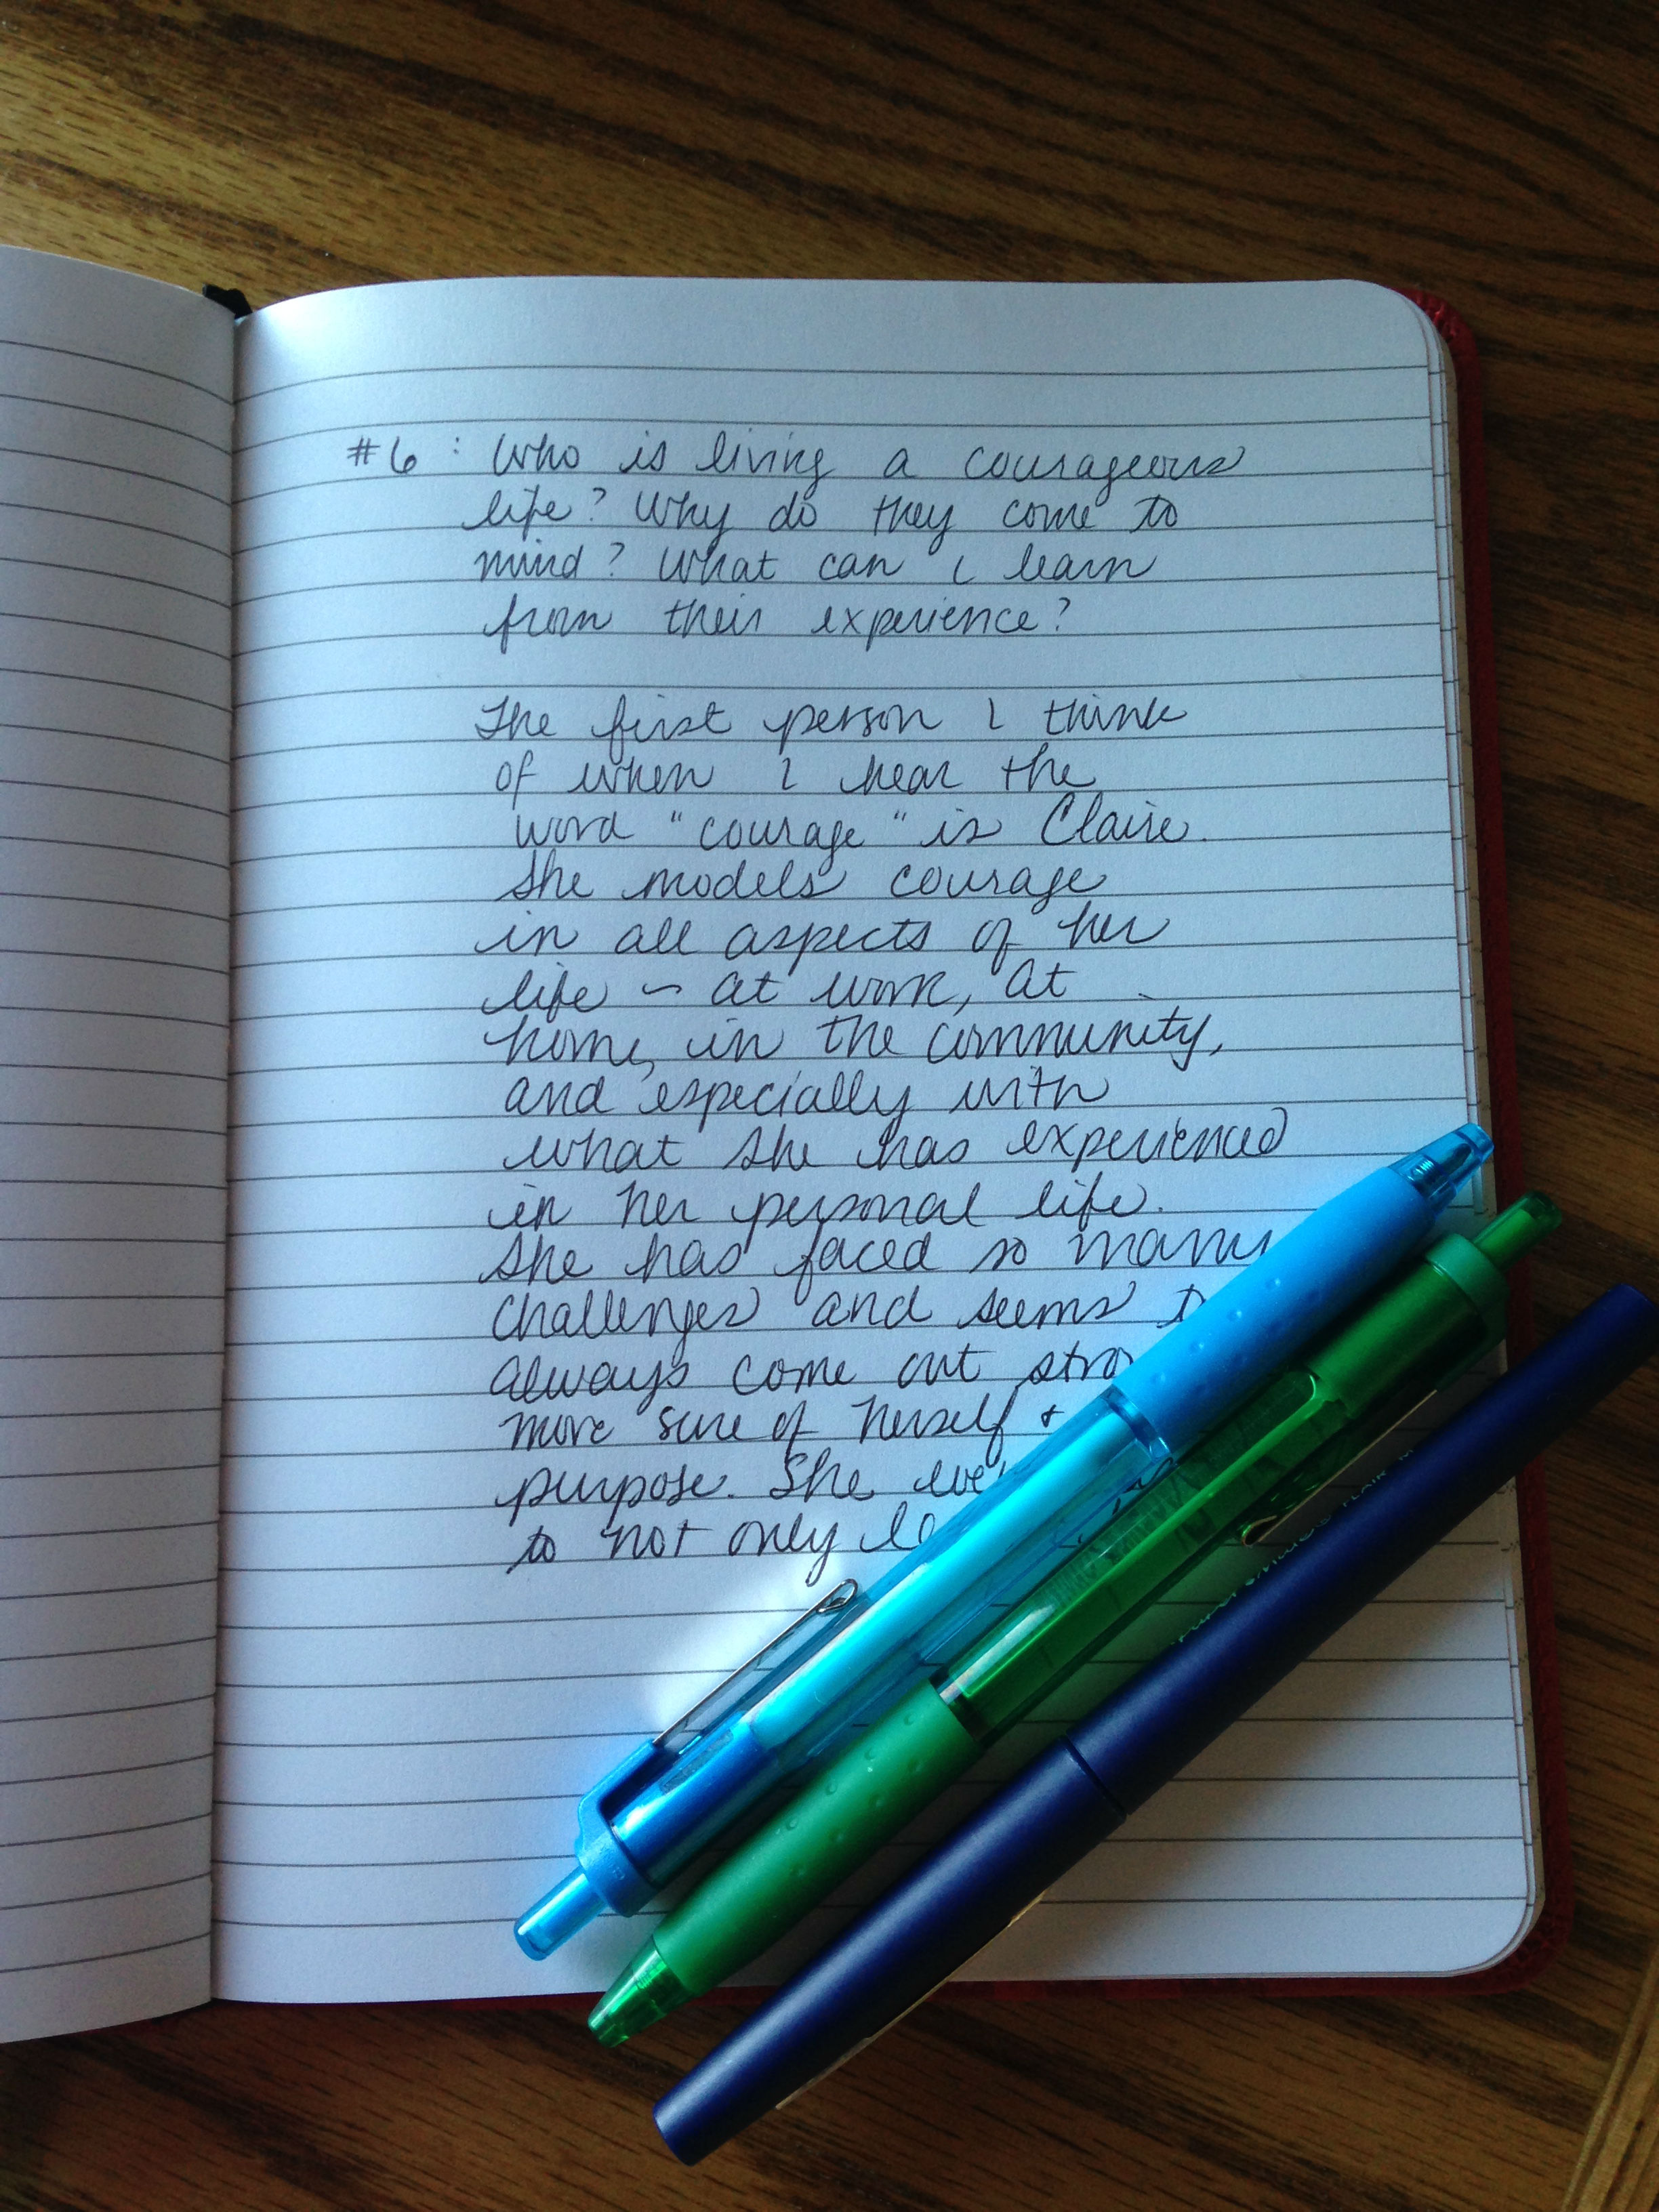 #6: Who is living a courageous
life? Why do they come to
mind? What can i learn
from their experience?
The first person I think
of when I hear the
word "courage" is Claire.
She models courage
in all aspects of her
life - at work, at
home, in the community,
and especially with
what she has experienced
in her personal life.
She has faced so many
challenges and seems
always come out
more sure of herself +
purpose. She
to not only